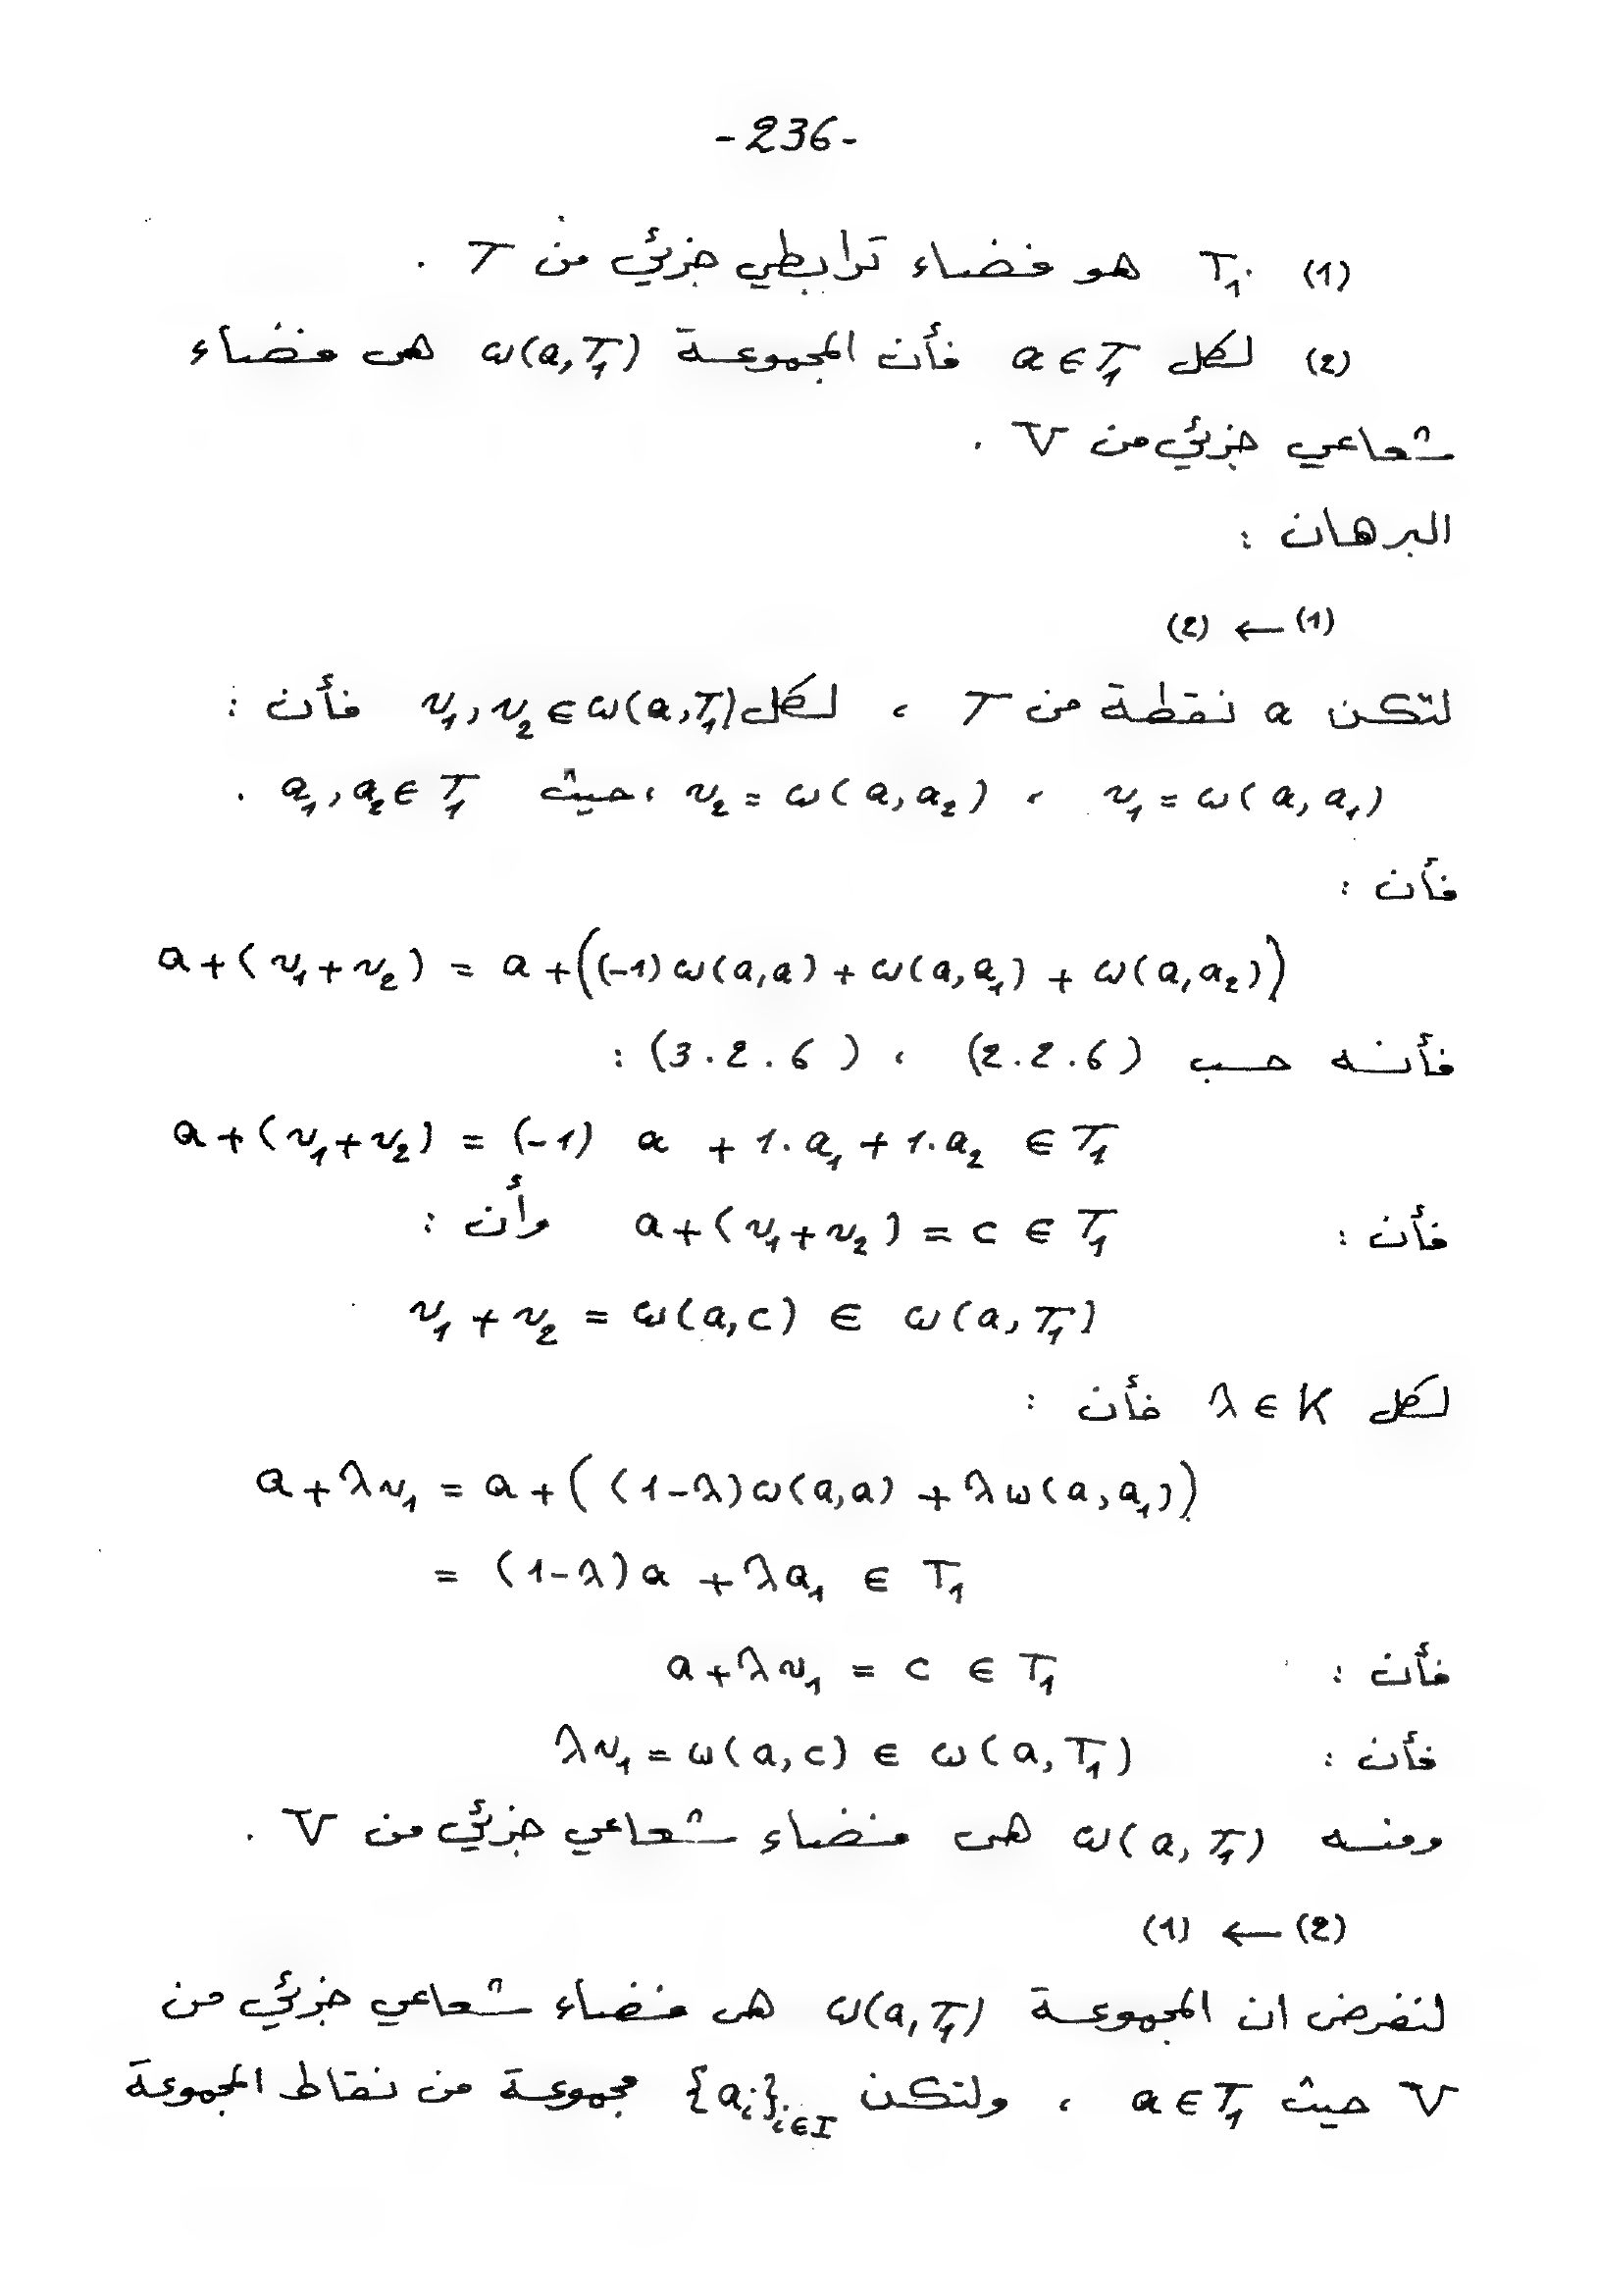 -236-
(1) T₁ هو فضاء ترابطي جزئي من T .
(2) لكل a ∈ T₁ فأن المجموعة ω(a,T₁) هي فضاء
شعاعي جزئي من V .
البرهان :
(1) ← (2)
لتكن a نقطة من T ، لكل v₁,v₂ ∈ ω(a,T₁) فأن :
v₁ = ω(a,a₁) ، v₂ = ω(a,a₂) ، حيث a₁,a₂ ∈ T₁ .
فأن :
a+(v₁+v₂) = a+((-1)ω(a,a) + ω(a,a₁) + ω(a,a₂))
فأنه حسب (2.2.6) ، (3.2.6) :
a+(v₁+v₂) = (-1) a + 1.a₁ + 1.a₂ ∈ T₁
فأن : a+(v₁+v₂) = c ∈ T₁ وأن :
v₁ + v₂ = ω(a,c) ∈ ω(a,T₁)
لكل λ ∈ K فأن :
a+λv₁ = a+((1-λ)ω(a,a) + λω(a,a₁))
= (1-λ)a + λa₁ ∈ T₁
فأن : a+λv₁ = c ∈ T₁
فأن : λv₁ = ω(a,c) ∈ ω(a,T₁)
ومنه ω(a,T₁) هي فضاء شعاعي جزئي من V .
(2) ← (1)
لنفرض ان المجموعة ω(a,T₁) هي فضاء شعاعي جزئي من
V حيث a ∈ T₁ ، ولتكن {aᵢ}ᵢ∈I مجموعة من نقاط المجموعة